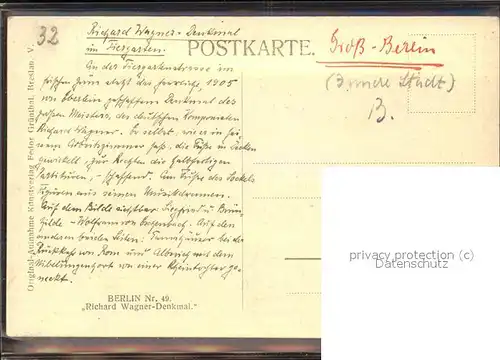 32
Richard Wagner-Denkmal
im Tiergarten.
POSTKARTE.
Groß-Berlin
(Innere Stadt)
B.
An der Tiergartenstrasse im
1905
von Eberlein Denkmal des
Meisters, des deutschen Komponisten
Richard Wagner. Er selbst, wie er in sei-
nem Arbeitszimmer saß, die Füße in Decken
gewickelt, zur Rechten die
Partituren, - schaffend. Am Fuße des Sockels
Figuren aus seinen Musikdramen.
Auf dem Bilde sichtbar: Siegfried u. Brün-
hilde - Wolfram von Eschenbach. Auf den
anderen beiden Seiten: Tannhäuser bei der
Rückkehr von Rom und Alberich mit dem
Nibelungenhort von einer Rheintochter ge-
neckt.
BERLIN Nr. 49.
"Richard Wagner-Denkmal."
Original-Aufnahme Kunstverlag Fedor Grünthal, Breslau. V.
privacy protection (c)
Datenschutz